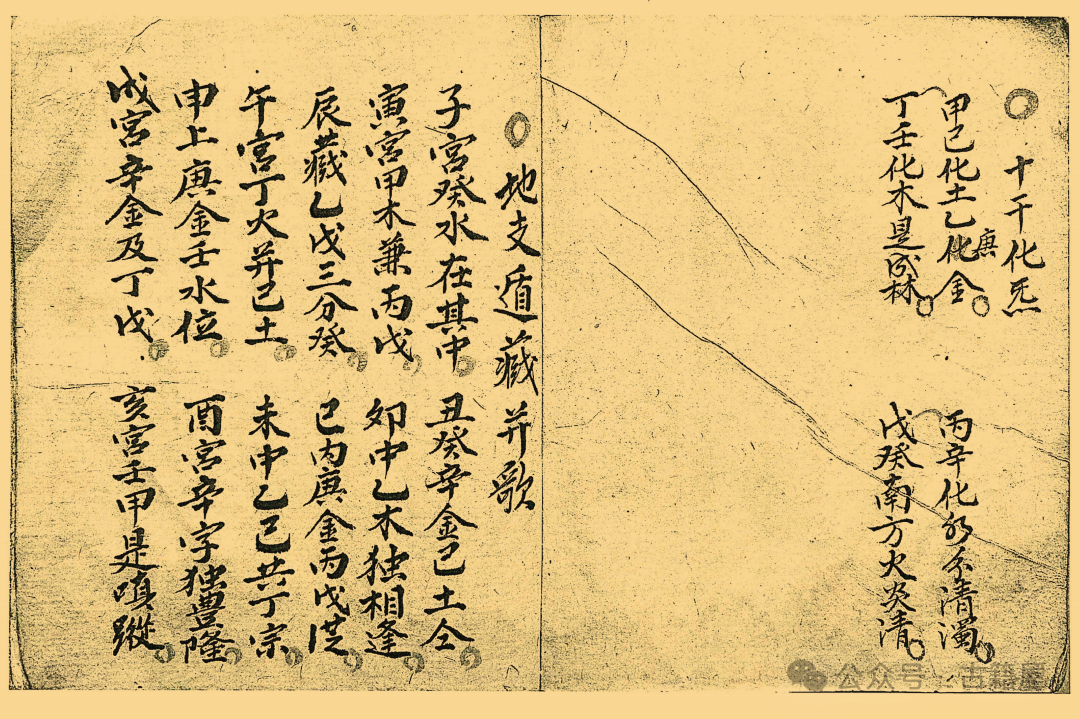 十干化炁
甲己化土乙庚化金 丙辛化水分清濁
丁壬化木是成林 戊癸南方火炎清
地支遁藏并歌
子宮癸水在其中 丑癸辛金己土仝
寅宮甲木兼丙戊 卯中乙木独相逢
辰藏乙戊三分癸 巳内庚金丙戊
午宮丁火并己土 未中乙己共丁宗
申上庚金壬水位 酉宮辛字独豊隆
戌宮辛金及丁戊 亥宮壬甲是嗔蹤
公众号 · 古籍屋